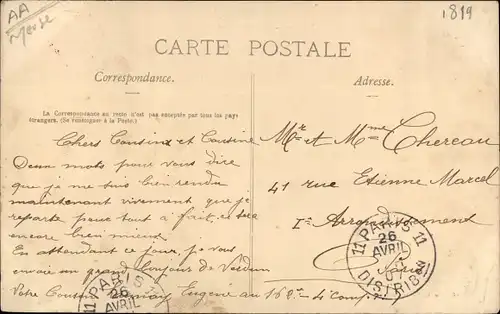 AA
Meuse
1819
CARTE POSTALE
Correspondance.
Adresse.
La Correspondance au recto n'est pas acceptée par tous les pays
étrangers. (Se renseigner à la Poste.)
Chers Cousins et Cousine
Deux mots pour vous dire
que je me suis bien rendu
maintenant vivement que je
reparte pour tout à fait, ce sera
encore bien mieux
En attendant ce jour, je vous
envoie un grand bonjour de Verdun
Votre Cousin Eugène au 168e 4 Comp
Mr et Mme Chereau
41 rue Etienne Marcel
Ier Arrondissement
Paris
11 PARIS 11
26
AVRIL
DISTRIB
PARIS 11
26
AVRIL